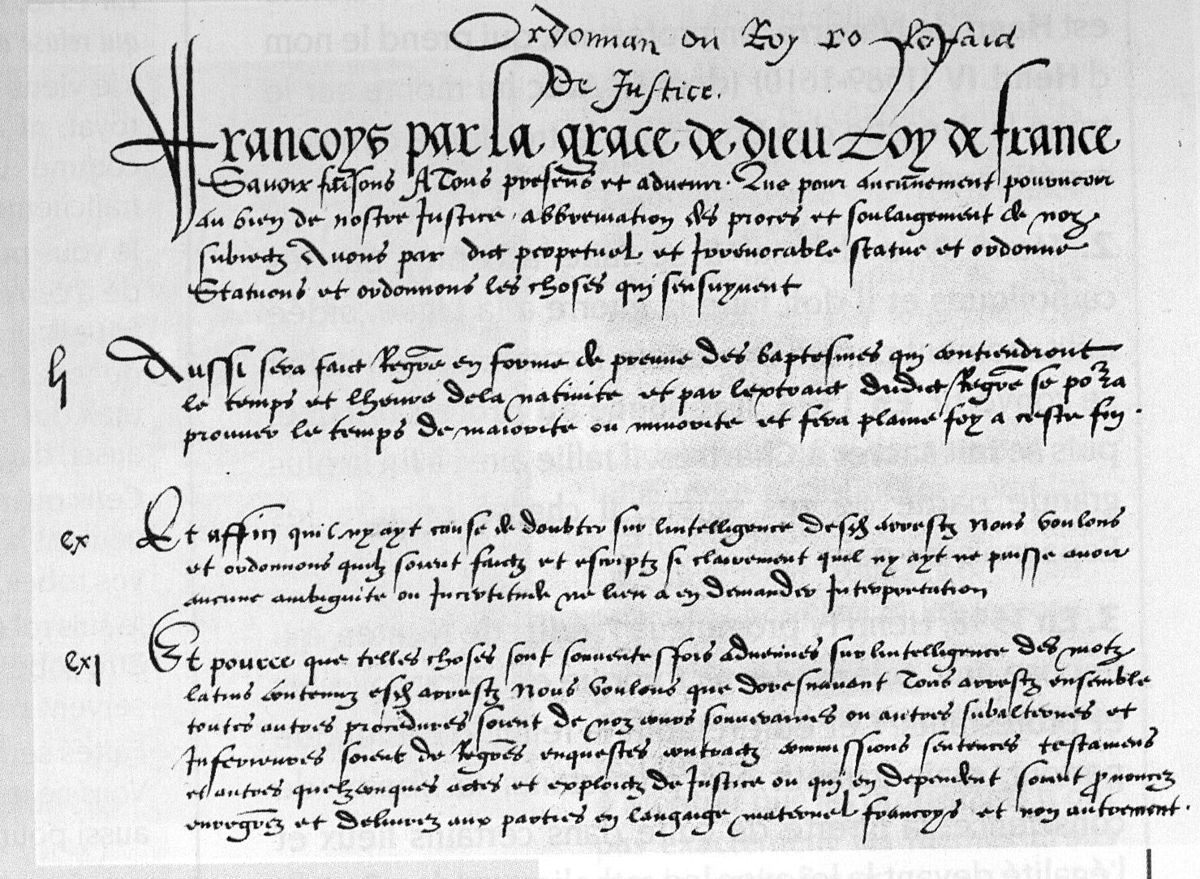 Ordonnan du Roy
De Justice.
Francoys par la grace de dieu Roy de france
Savoir faisons A Tous presens et advenir. Que pour aucunement pourveoir
au bien de nostre Justice, abbreviation des proces et soulaigement de noz
subiectz Avons par dict perpetuel et Irrevocable statue et ordonne
Statuons et ordonnons les choses qui sensuyvent
lj Aussi sera faict Regre en forme de preuve des baptesmes qui contiendront
le temps et lheure dela nativite et par lextraict dudict Regre se porra
prouver le temps de maiorite ou minorite et fera plaine foy a ceste fin.
cx Et affin quil ny ayt cause de doubter sur lintelligence desd arrestz Nous voulons
et ordonnons quilz soient faictz et escriptz si clairement quil ny ayt ne puisse avoir
aucune ambiguite ou Incertitude ne lieu a en demander Interpretation
cxj Et pource que telles choses sont souventesfois advenues sur lintelligence des motz
latins contenuz esd arrestz Nous voulons que doresnavant Tous arrestz ensemble
toutes autres procedures soient de noz cours souveraines ou autres subalternes et
Inferieures soient de Regres enquestes contractz commissions sentences testamens
et autres quelzconques actes et exploictz de Justice ou qui en dependent soient pnoncez
enregrez et delivrez aux parties en langaige maternel francoys et non autrement.